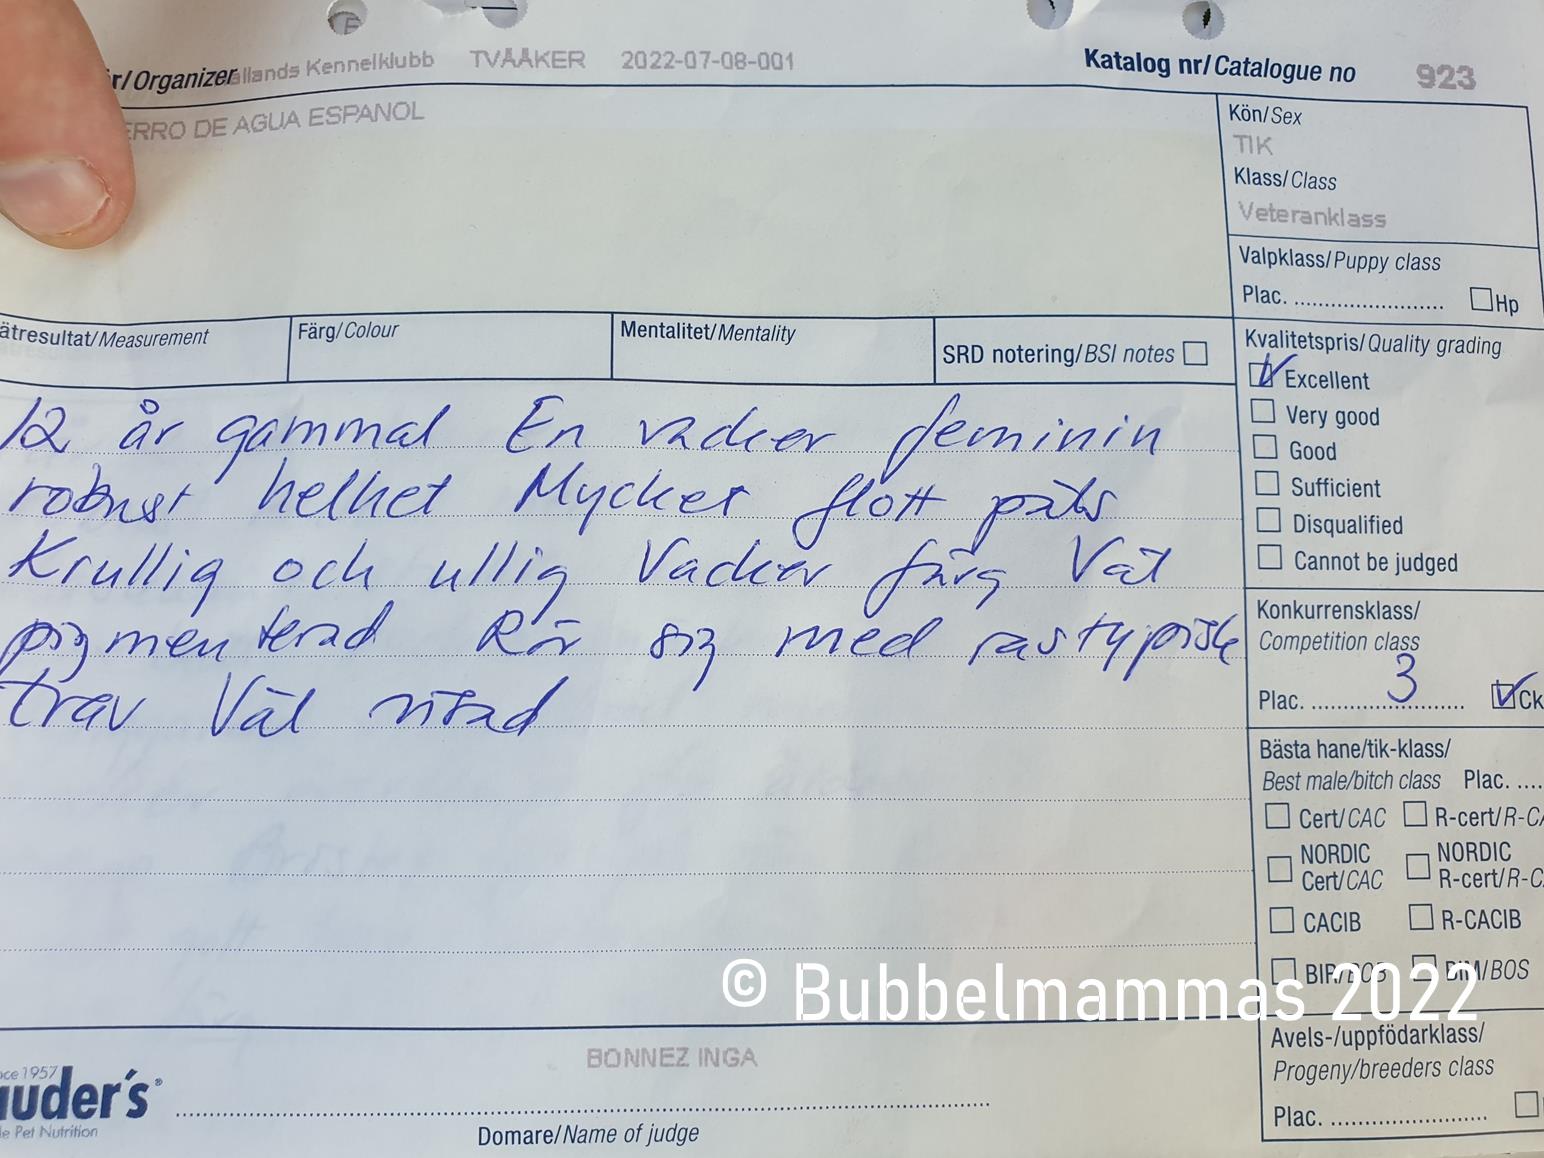 r/Organizer
allands Kennelklubb TVÅÅKER 2022-07-08-001
Katalog nr/Catalogue no 923
ERRO DE AGUA ESPANOL
Kön/Sex
TIK
Klass/Class
Veteranklass
Valpklass/Puppy class
Plac. Hp
ätresultat/Measurement
Färg/Colour
Mentalitet/Mentality
SRD notering/BSI notes
Kvalitetspris/Quality grading
Excellent
Very good
Good
Sufficient
Disqualified
Cannot be judged
12 år gammal En vacker feminin
robust helhet Mycket flott päls
Krullig och ullig Vacker färg Väl
pigmenterad Rör sig med rastypisk
trav Väl visad
Konkurrensklass/
Competition class
Plac. 3 Ck
Bästa hane/tik-klass/
Best male/bitch class Plac.
Cert/CAC R-cert/R-CA
NORDIC Cert/CAC NORDIC R-cert/R-C
CACIB R-CACIB
BIR/BOB BIM/BOS
© Bubbelmammas 2022
Avels-/uppfödarklass/
Progeny/breeders class
Plac.
BONNEZ INGA
nce 1957
auder's®
le Pet Nutrition
Domare/Name of judge